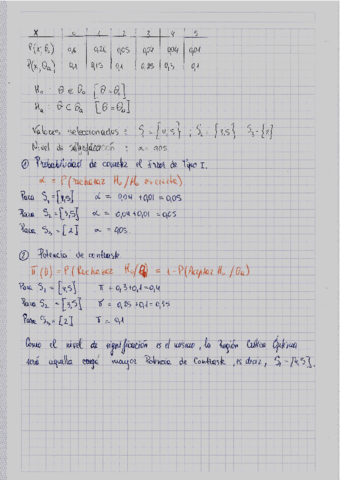 X 0 1 2 3 4 5
P(X, θ₀) 0,6 0,26 0,05 0,04 0,01
P(X, θₐ) 0,1 0,15 0,1 0,25 0,3 0,1
H₀: θ ∈ θ₀ [θ=θ₀]
θ ⊂ θₐ
Valores seleccionados: S₁ = [4,5] ; S₂ = [3,5] S₃ = [2]
Nivel de significación: α = 0,05
① Probabilidad de cometer el Error de Tipo I.
α = P(rechazar H₀ / H₀ es cierta)
Para S₁ = [4,5] α = 0,04 + 0,01 = 0,05
Para S₂ = [3,5] α = 0,04 + 0,01 = 0,05
Para S₃ = [2] α = 0,05
② Potencia de contraste
π(θ) = P(Rechazar H₀/θₐ) = 1 - P(Aceptar H₀/θₐ)
Para S₁ = [4,5] π = 0,3 + 0,1 = 0,4
Para S₂ = [3,5] π = 0,25 + 0,1 = 0,35
Para S₃ = [2] π = 0,1
Como el nivel de significación es el mismo, la Región Crítica Óptima
será aquella con mayor Potencia de Contraste, es decir, [4,5].